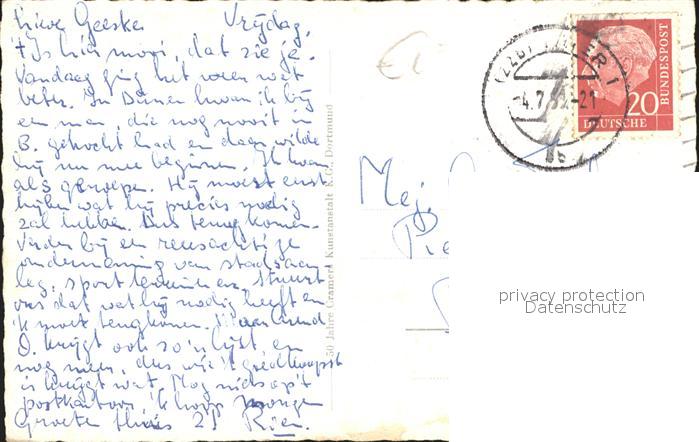 Lieve Geeske Vrijdag,
't Is hier mooi, dat zie je.
Vandaag ging het weer wat
beter. In Düren kwam ik bij
een man, die nog nooit in
B. gekocht had en daar wilde
hij nu mee beginnen. Ik kwam
als geroepe. Hij moest eerst
kijken wat hij precies nodig
zal hebben. Dus terugkomen.
Verder bij een reusachtige
onderneming van
sportterreinen. Stuurt
ons dat wat hij nodig heeft en
'k moet terugkomen.
D. krijgt ook zo'n lijst en
nog meer, dus wie 't goedkoopst
is krijgt wat. Nog niets op 't
postkantoor, 'k hoop morgen
Groeten thuis 21 Rien.
50 Jahre Cramers Kunstanstalt K.G., Dortmund
Mej.
4.7. -21
20
DEUTSCHE
BUNDESPOST
privacy protection
Datenschutz